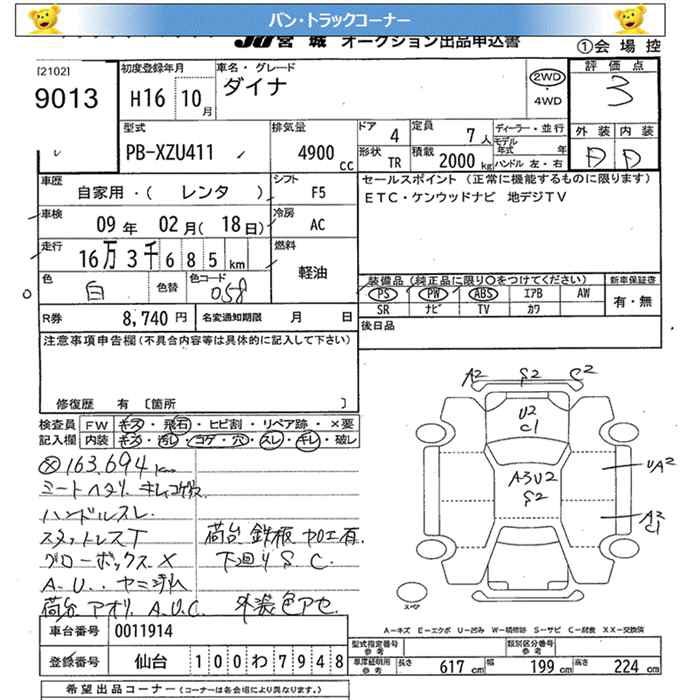 バン・トラックコーナー
JU宮城 オークション出品申込書
①会場控
[2102]
9013
初度登録年月
H16 10月
車名・グレード
ダイナ
2WD
・
4WD
評価点
3
型式
PB-XZU411
排気量
4900cc
ドア 4
定員 7人
ディーラー・並行
モデル年式 年
形状 TR
積載 2000kg
ハンドル 左・右
外装 内装
D D
車歴
自家用・( レンタ )
シフト
F5
セールスポイント (正常に機能するものに限ります)
ETC・ケンウッドナビ 地デジTV
車検
09年 02月(18日)
冷房
AC
走行
16万3千685km
燃料
軽油
色
白
色替
色コード
058
装備品(純正品に限り○をつけてください)
新車保証書
PS PW ABS エアB AW
有・無
SR ナビ TV カワ
R券 8,740円
名変通知期限 月 日
後日品
注意事項申告欄(不具合内容等は具体的に記入して下さい)
修復歴 有 〔箇所 〕
検査員記入欄
FW キズ・飛石・ヒビ割・リペア跡・×要
内装 キズ・汚レ・コゲ・穴・スレ・キレ・破レ
163,694km
シートヘタリ.キレ.コゲ穴.
ハンドルスレ.
スタットレスT 荷台 鉄板 加工有.
グローボックスX 下廻りS.C.
A.U..
荷台 アオリ A.U.C. 外装色アセ.
A2 S2 C2
U2
C1
A3U2
S2
UA2
A2
C1
スペア
A−キズ E−エクボ U−凹み W−補修跡 S−サビ C−腐食 XX−交換済
車台番号 0011914
登録番号 仙台 100わ7948
型式指定番号 参考
類別区分番号 参考
車庫証明用 参考 長さ 617cm 幅 199cm 高さ 224cm
希望出品コーナー(コーナーは各会場により異なります。)